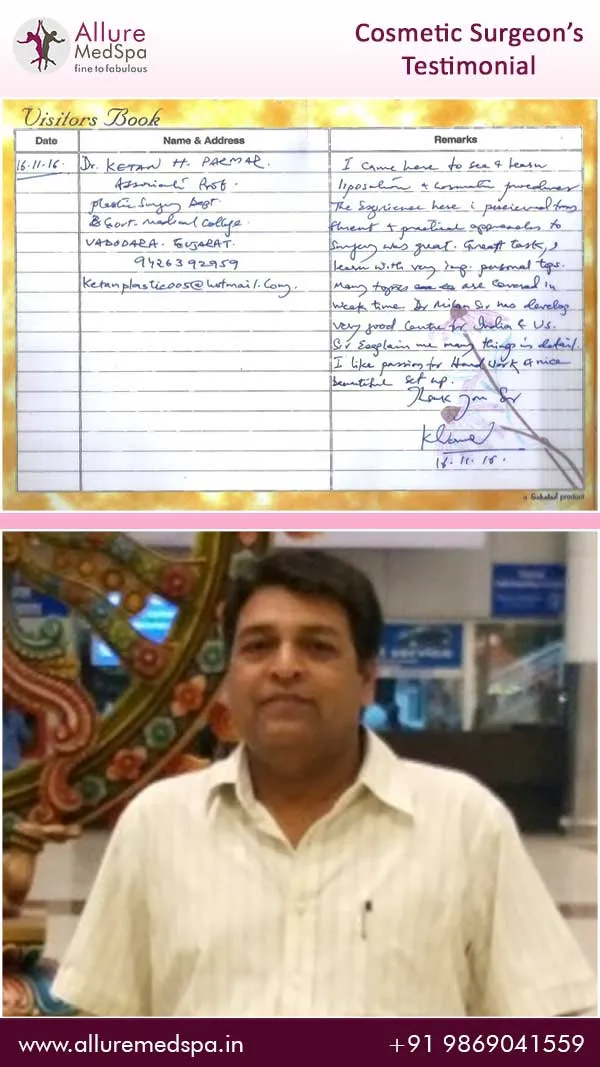 Allure
MedSpa
fine to fabulous
Cosmetic Surgeon's
Testimonial
Visitors Book
Date
Name & Address
Remarks
16.11.16.
Dr. KETAN H. PARMAR.
Associate Prof.
plastic Surgery Dept
Govt. Medical College.
VADODARA. GUJARAT.
9426392959
Ketanplastic005@hotmail.com
I came here to see & learn
liposuction & cosmetic procedures
The Experience here i perceived from
& practical approaches to
Surgery was great. Great task, I
learn with very imp. personal tips.
Many topics are covered in
week time. Dr Milan Sir has develop
very good Centre for India & Us.
Sir Explain me many things in detail.
I like passion for Hard work & nice
beautiful set up.
Thank you Sir
16.11.16.
a Gokalad product
service
www.alluremedspa.in
+91 9869041559